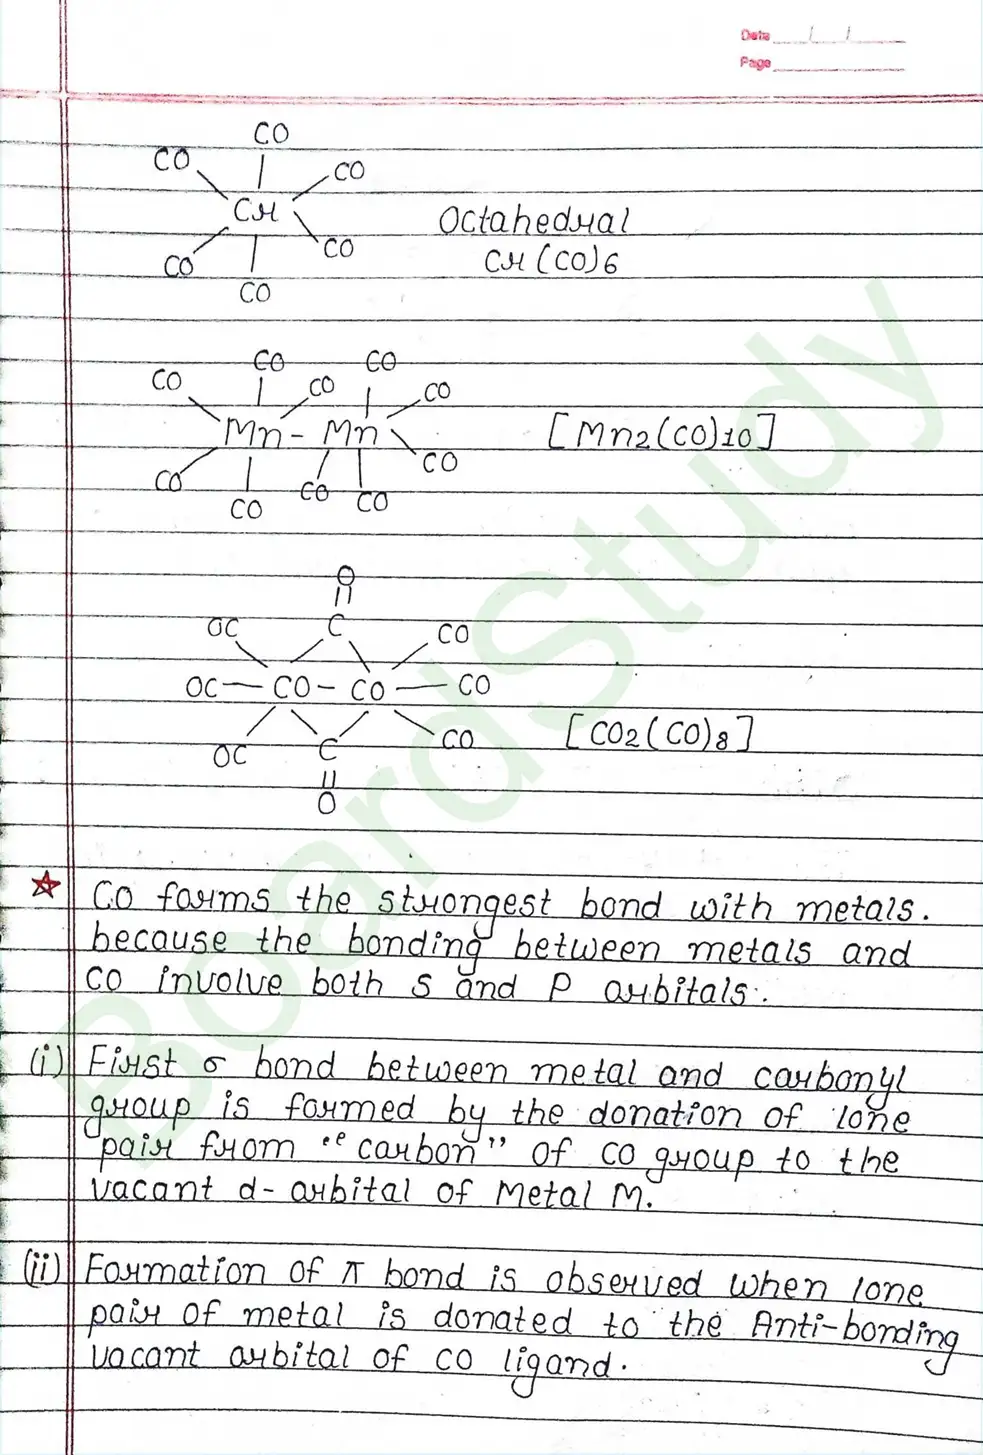 Date / /
Page
CO
CO CO
Cr
CO CO
CO
Octahedral
Cr (CO)6
CO CO
CO CO CO
Mn - Mn
CO CO CO
CO CO
[Mn2(CO)10]
O
OC C CO
OC — CO - CO — CO
OC C CO
O
[CO2(CO)8]
CO forms the strongest bond with metals.
because the bonding between metals and
CO involve both S and P orbitals.
(i) First σ bond between metal and carbonyl
group is formed by the donation of lone
pair from "carbon" of CO group to the
vacant d-orbital of Metal M.
(ii) Formation of π bond is observed when lone
pair of metal is donated to the Anti-bonding
vacant orbital of CO ligand.
BoardStudy